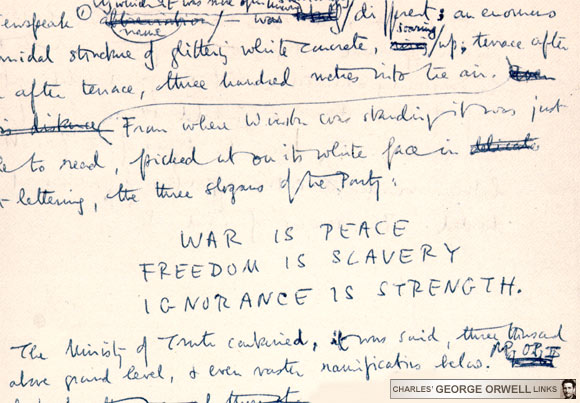 by which it was
ewspeak name / was / different; an enormous
midal structure of glittering white concrete, soaring / up, terrace after
after terrace, three hundred metres into the air.
distance From where Winston was standing it was just
le to read, picked out on its white face in
lettering, the three slogans of the Party:
WAR IS PEACE
FREEDOM IS SLAVERY
IGNORANCE IS STRENGTH.
The Ministry of Truth contained, it was said, three thousand
above ground level, & even vaster ramifications below.
CHARLES' GEORGE ORWELL LINKS